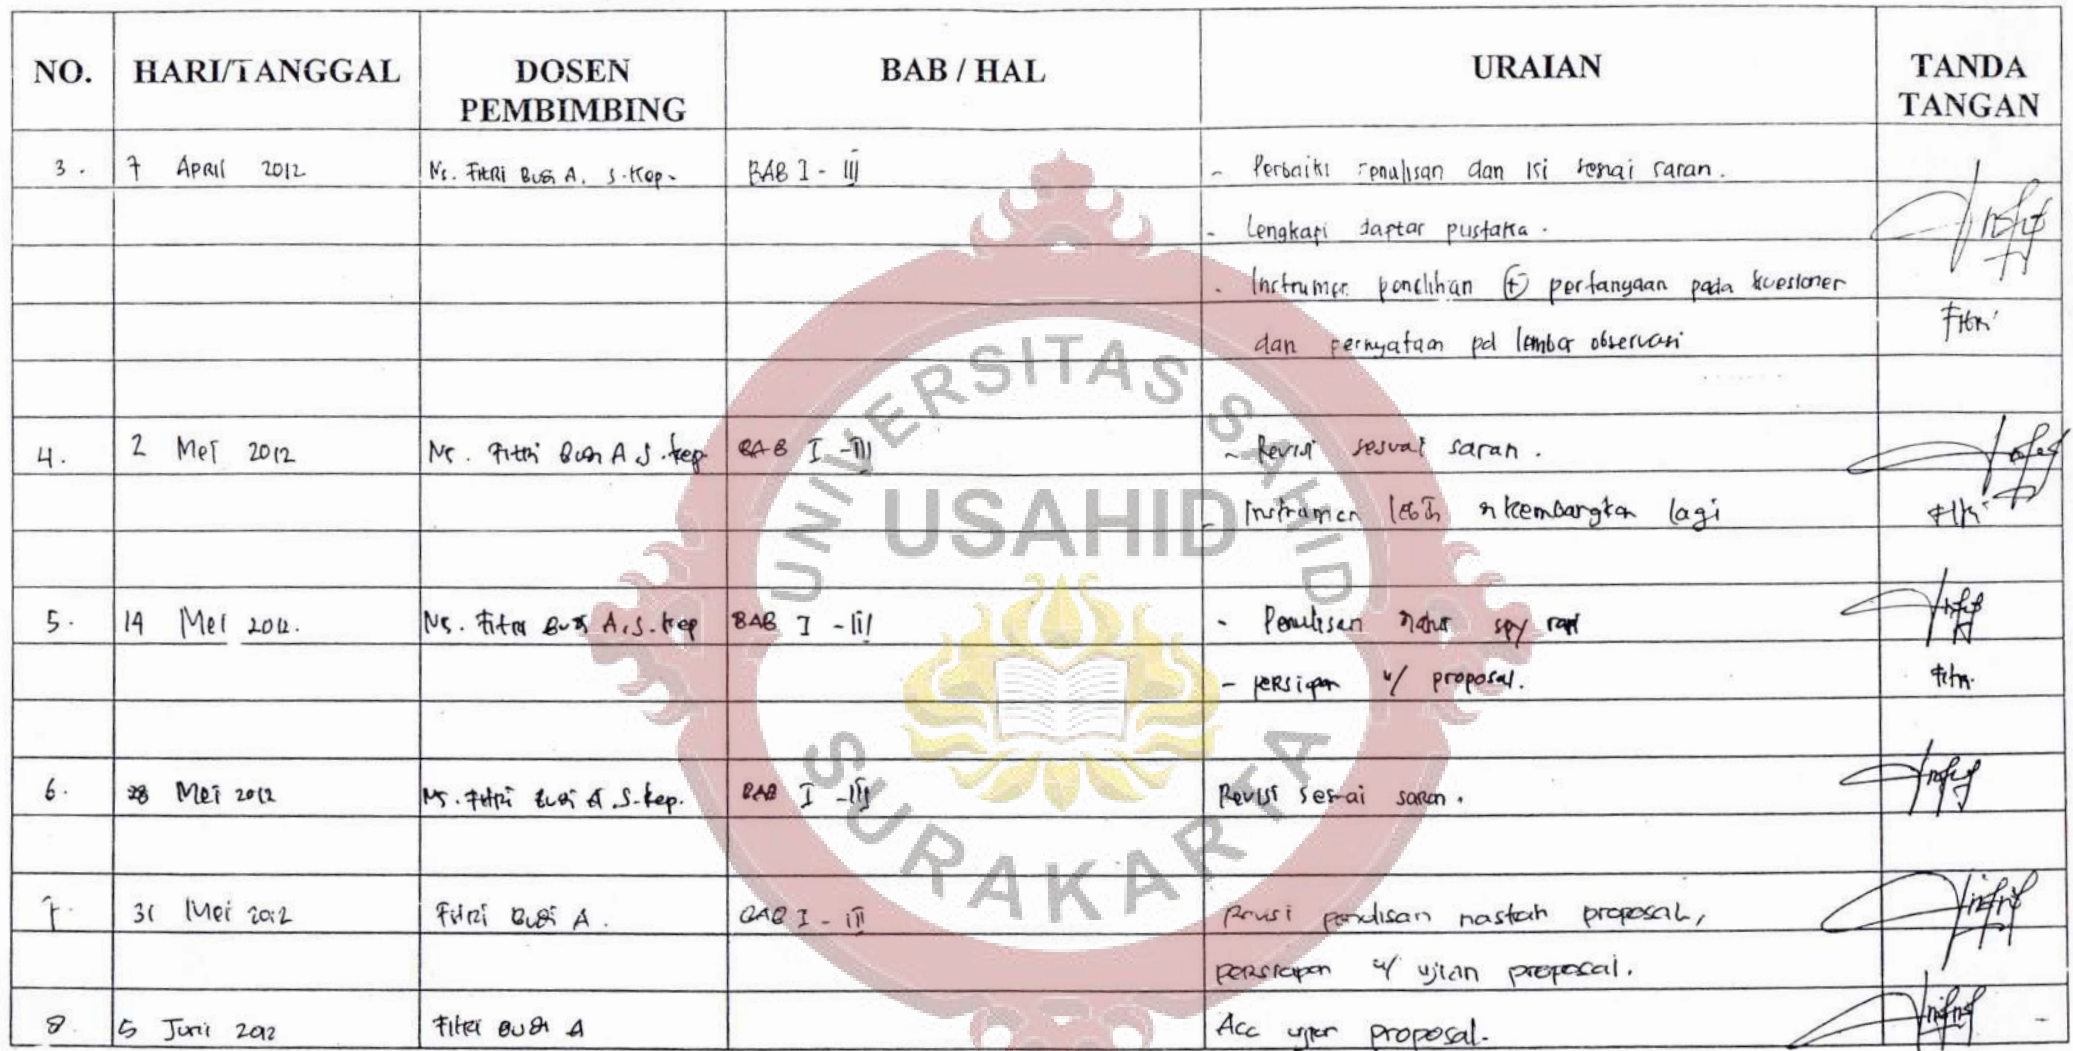 NO. HARI/TANGGAL DOSEN PEMBIMBING BAB / HAL URAIAN TANDA TANGAN
3. 7 April 2012 Ns. Fitri Budi A. S.Kep. BAB I - III - Perbaiki penulisan dan isi sesuai saran.
- Lengkapi daptar pustaka.
- Instrumen penelitian (+) pertanyaan pada kuesioner
dan pernyataan pd lembar observasi
Fitri
4. 2 Mei 2012 Ns. Fitri Budi A.S.kep. BAB I - III - Revisi sesuai saran.
- Instrumen lebih dikembangkan lagi
Fitri
5. 14 Mei 2012. Ns. Fitri Budi A.S.kep BAB I - III - Penulisan diatur spy rapi
- persiapan u/ proposal.
Fitri
6. 28 Mei 2012 Ns. Fitri Budi A.S.kep. BAB I - III Revisi sesuai saran.
7. 31 Mei 2012 Fitri Budi A. BAB I - III Revisi penulisan naskah proposal,
persiapan u/ ujian proposal.
8. 5 Juni 2012 Fitri Budi A Acc ujian proposal.
UNIVERSITAS SAHID
USAHID
SURAKARTA